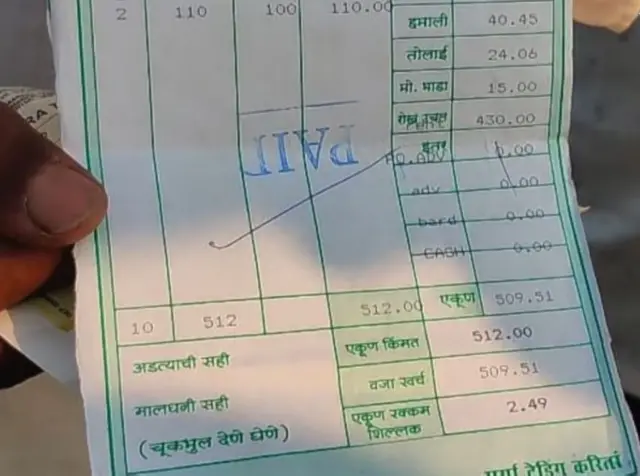 2 110 100 110.00
हमाली 40.45
तोलाई 24.06
मो. भाडा 15.00
रोख उचल 430.00
इतर 0.00
PAID
adv 0.00
bard 0.00
CASH 0.00
10 512 512.00 एकूण 509.51
एकूण किंमत 512.00
अडत्याची सही
वजा खर्च 509.51
मालधनी सही
एकूण रक्कम शिल्लक 2.49
(चूकभुल देणे घेणे)
ट्रेडिंग करिता